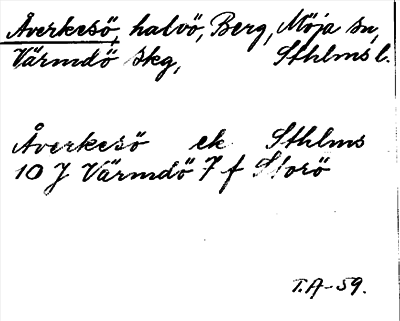 Åverkesö, halvö, Berg, Möja sn,
Värmdö skg, Sthlms l.
Åverkesö ek Sthlms
10 J Värmdö 7 f Storö
T.A-59.